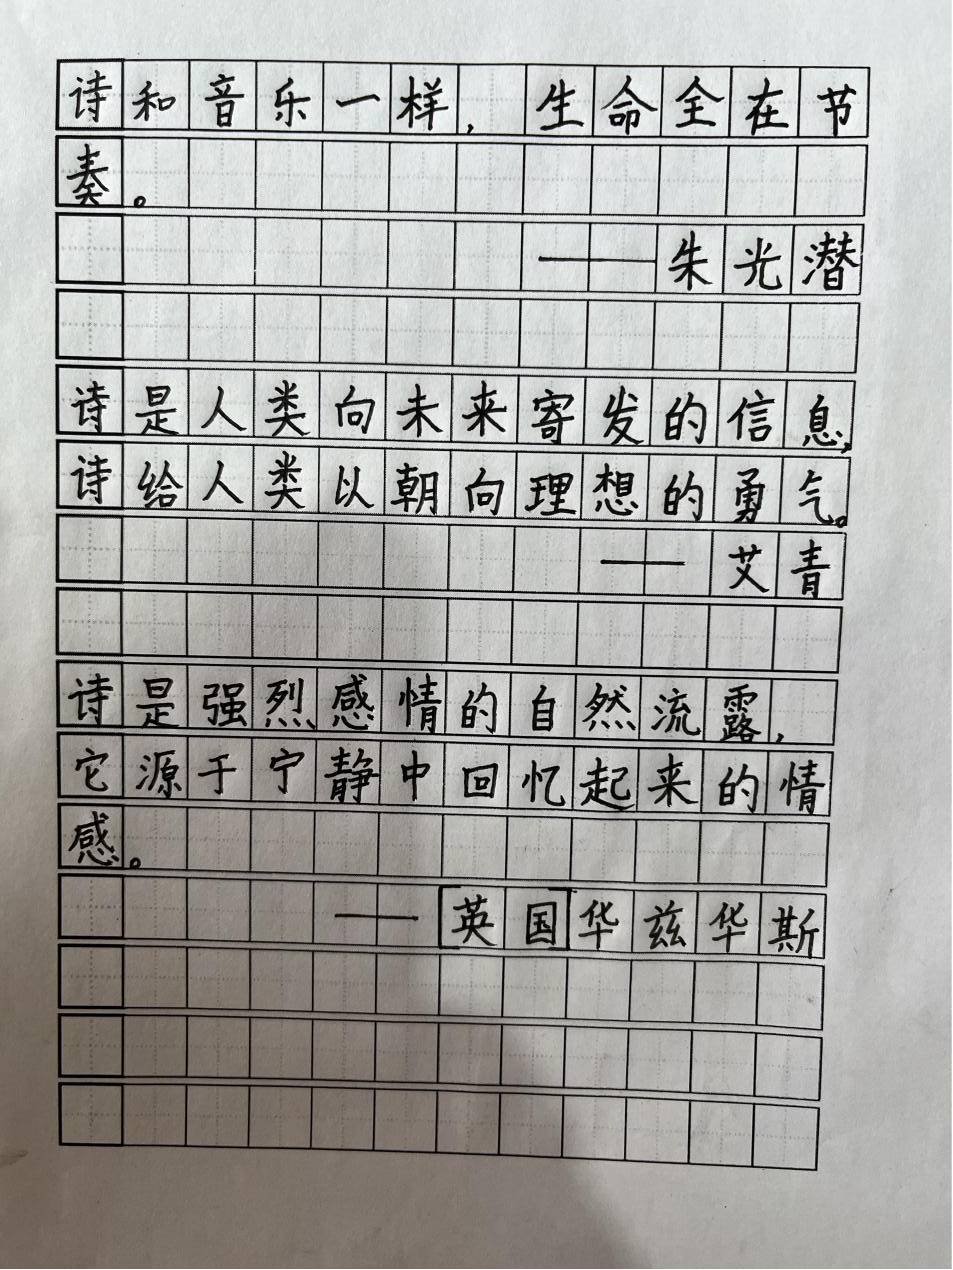 诗和音乐一样，生命全在节
奏。
——朱光潜
诗是人类向未来寄发的信息，
诗给人类以朝向理想的勇气。
——艾青
诗是强烈感情的自然流露，
它源于宁静中回忆起来的情
感。
——[英国]华兹华斯